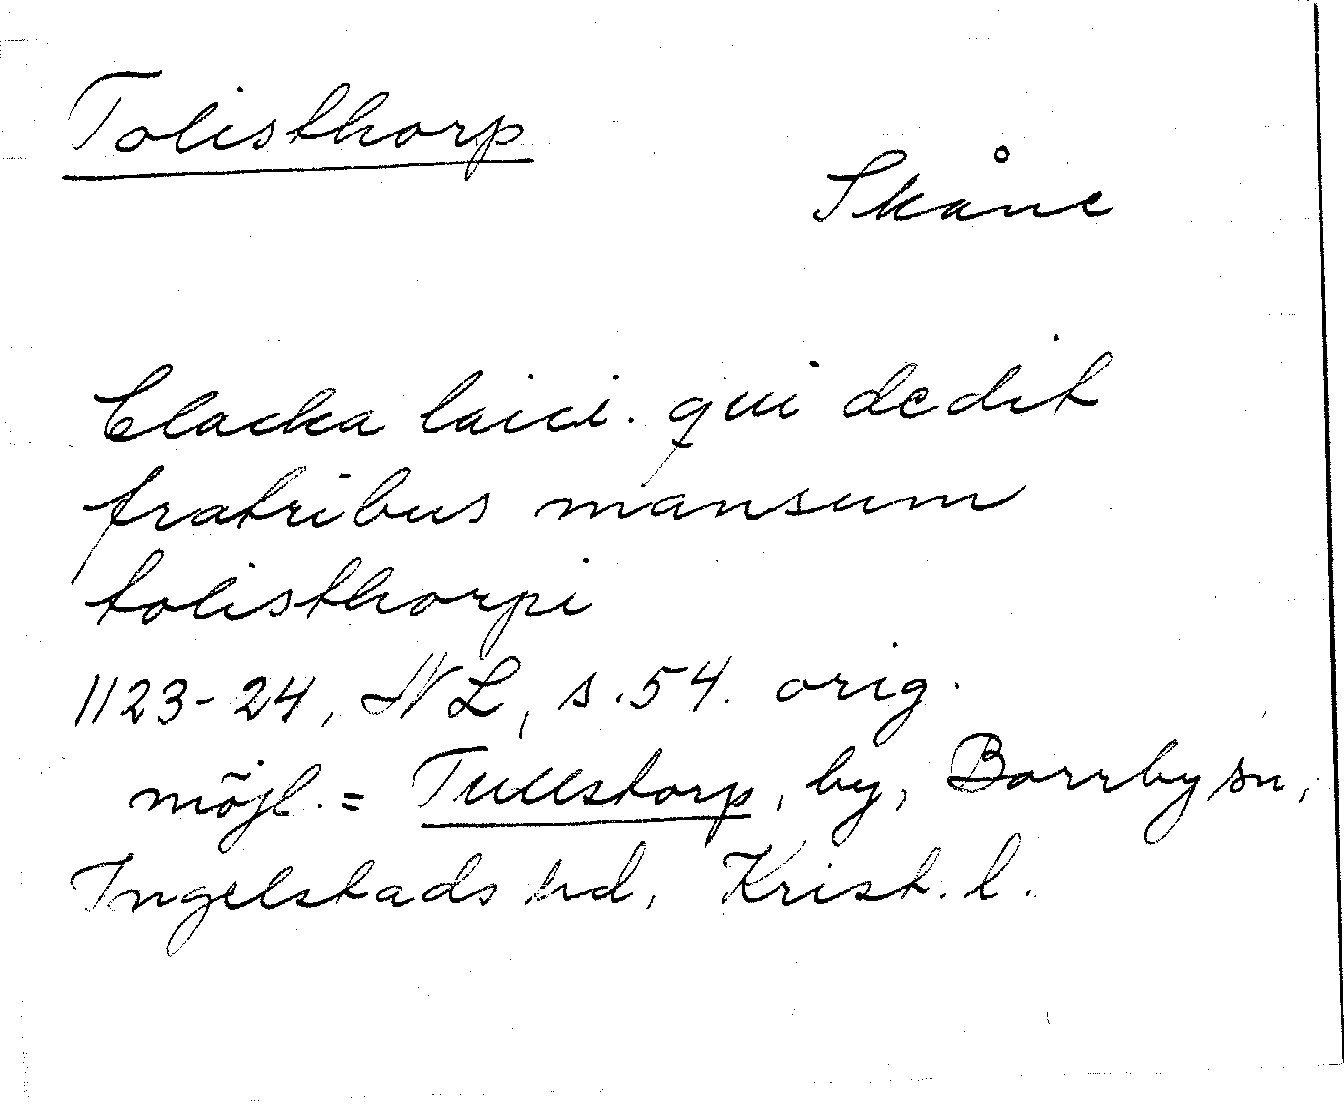 Tolisthorp
Skåne
Clacka laici. qui dedit
fratribus mansum
tolisthorpi
1123-24, NL, s.54. orig.
möjl. = Tullstorp, by, Borrby sn,
Ingelstads hd, Krist. l.